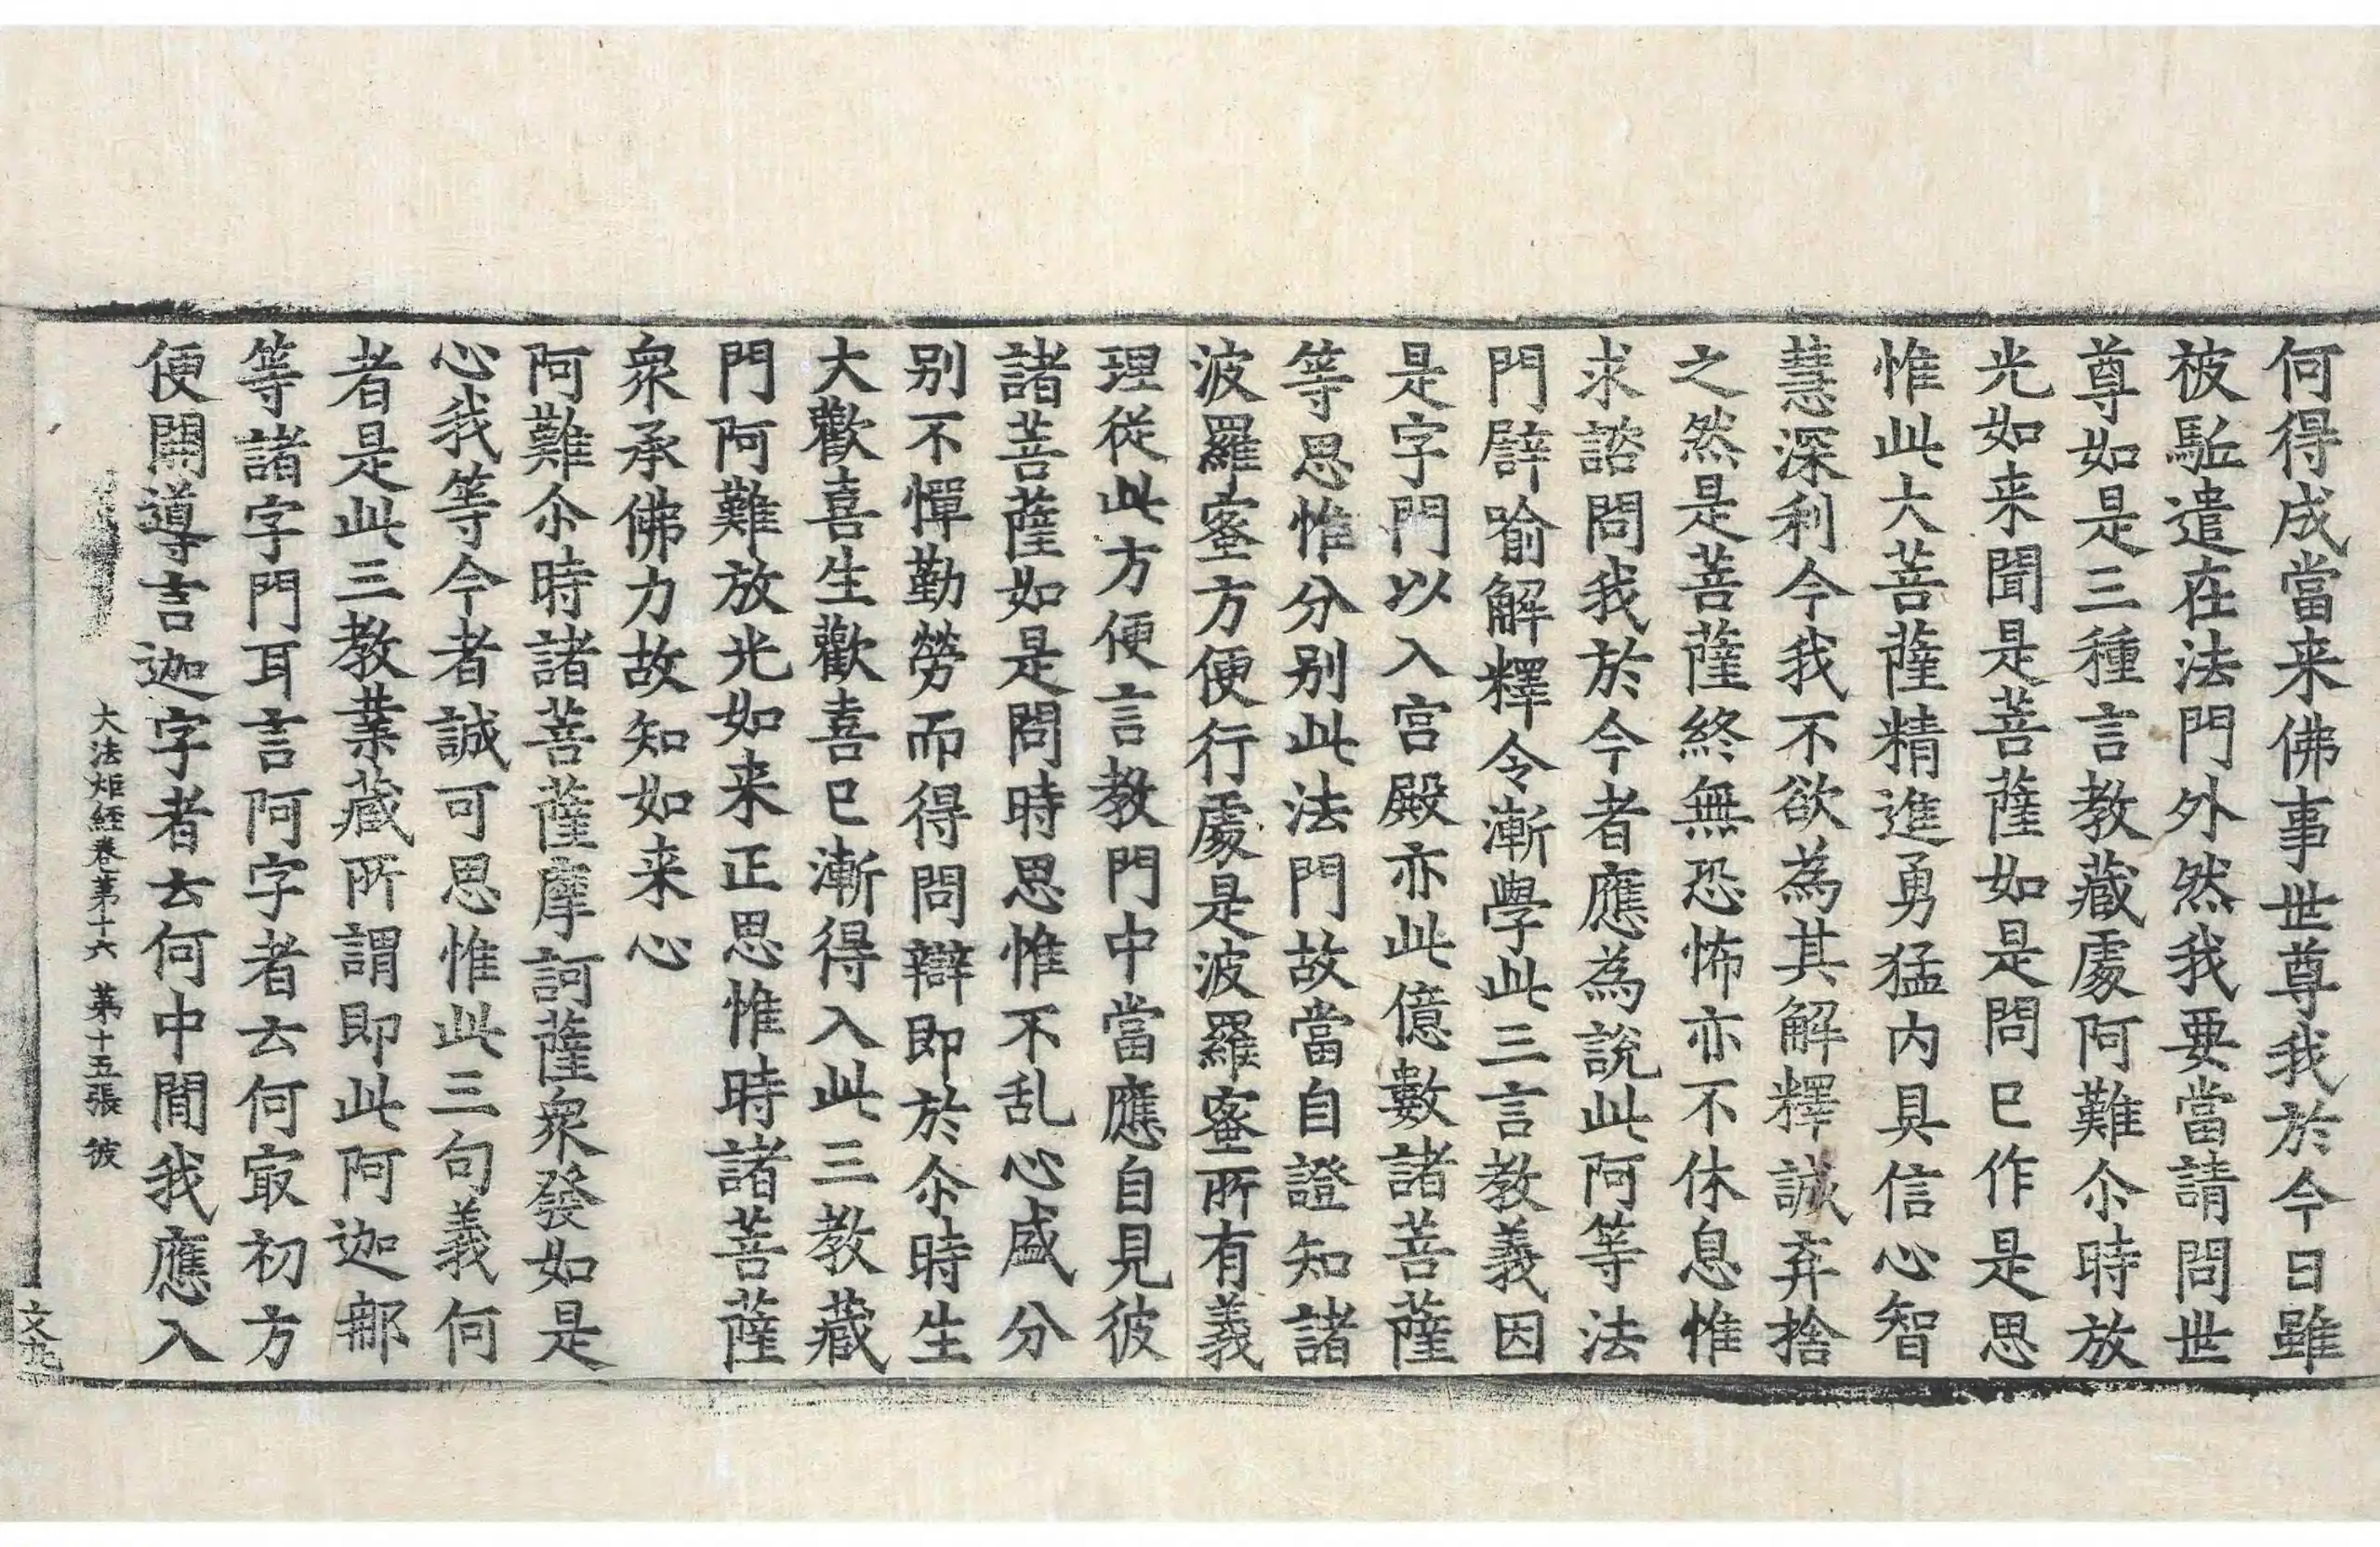 何得成當来佛事世尊我於今日雖
被駈遣在法門外然我要當請問世
尊如是三種言教藏處阿難尒時放
光如来聞是菩薩如是問已作是思
惟此大菩薩精進勇猛内具信心智
慧深利今我不欲為其解釋誠弃捨
之然是菩薩終無恐怖亦不休息惟
求諮問我於今者應為說此阿等法
門譬喻解釋令漸學此三言教義因
是字門以入宫殿亦此億數諸菩薩
等思惟分别此法門故當自證知諸
波羅蜜方便行處是波羅蜜所有義
理從此方便言教門中當應自見彼
諸菩薩如是問時思惟不乱心盛分
别不憚勤勞而得問辯即於尒時生
大歡喜生歡喜已漸得入此三教藏
門阿難放光如来正思惟時諸菩薩
衆承佛力故知如来心
阿難尒時諸菩薩摩訶薩衆發如是
心我等今者誠可思惟此三句義何
者是此三教業藏所謂即此阿迦那
等諸字門耳言阿字者去何㝡初方
便開導言迦字者去何中間我應入
大法炬経卷苐十六 苐十五張 彼